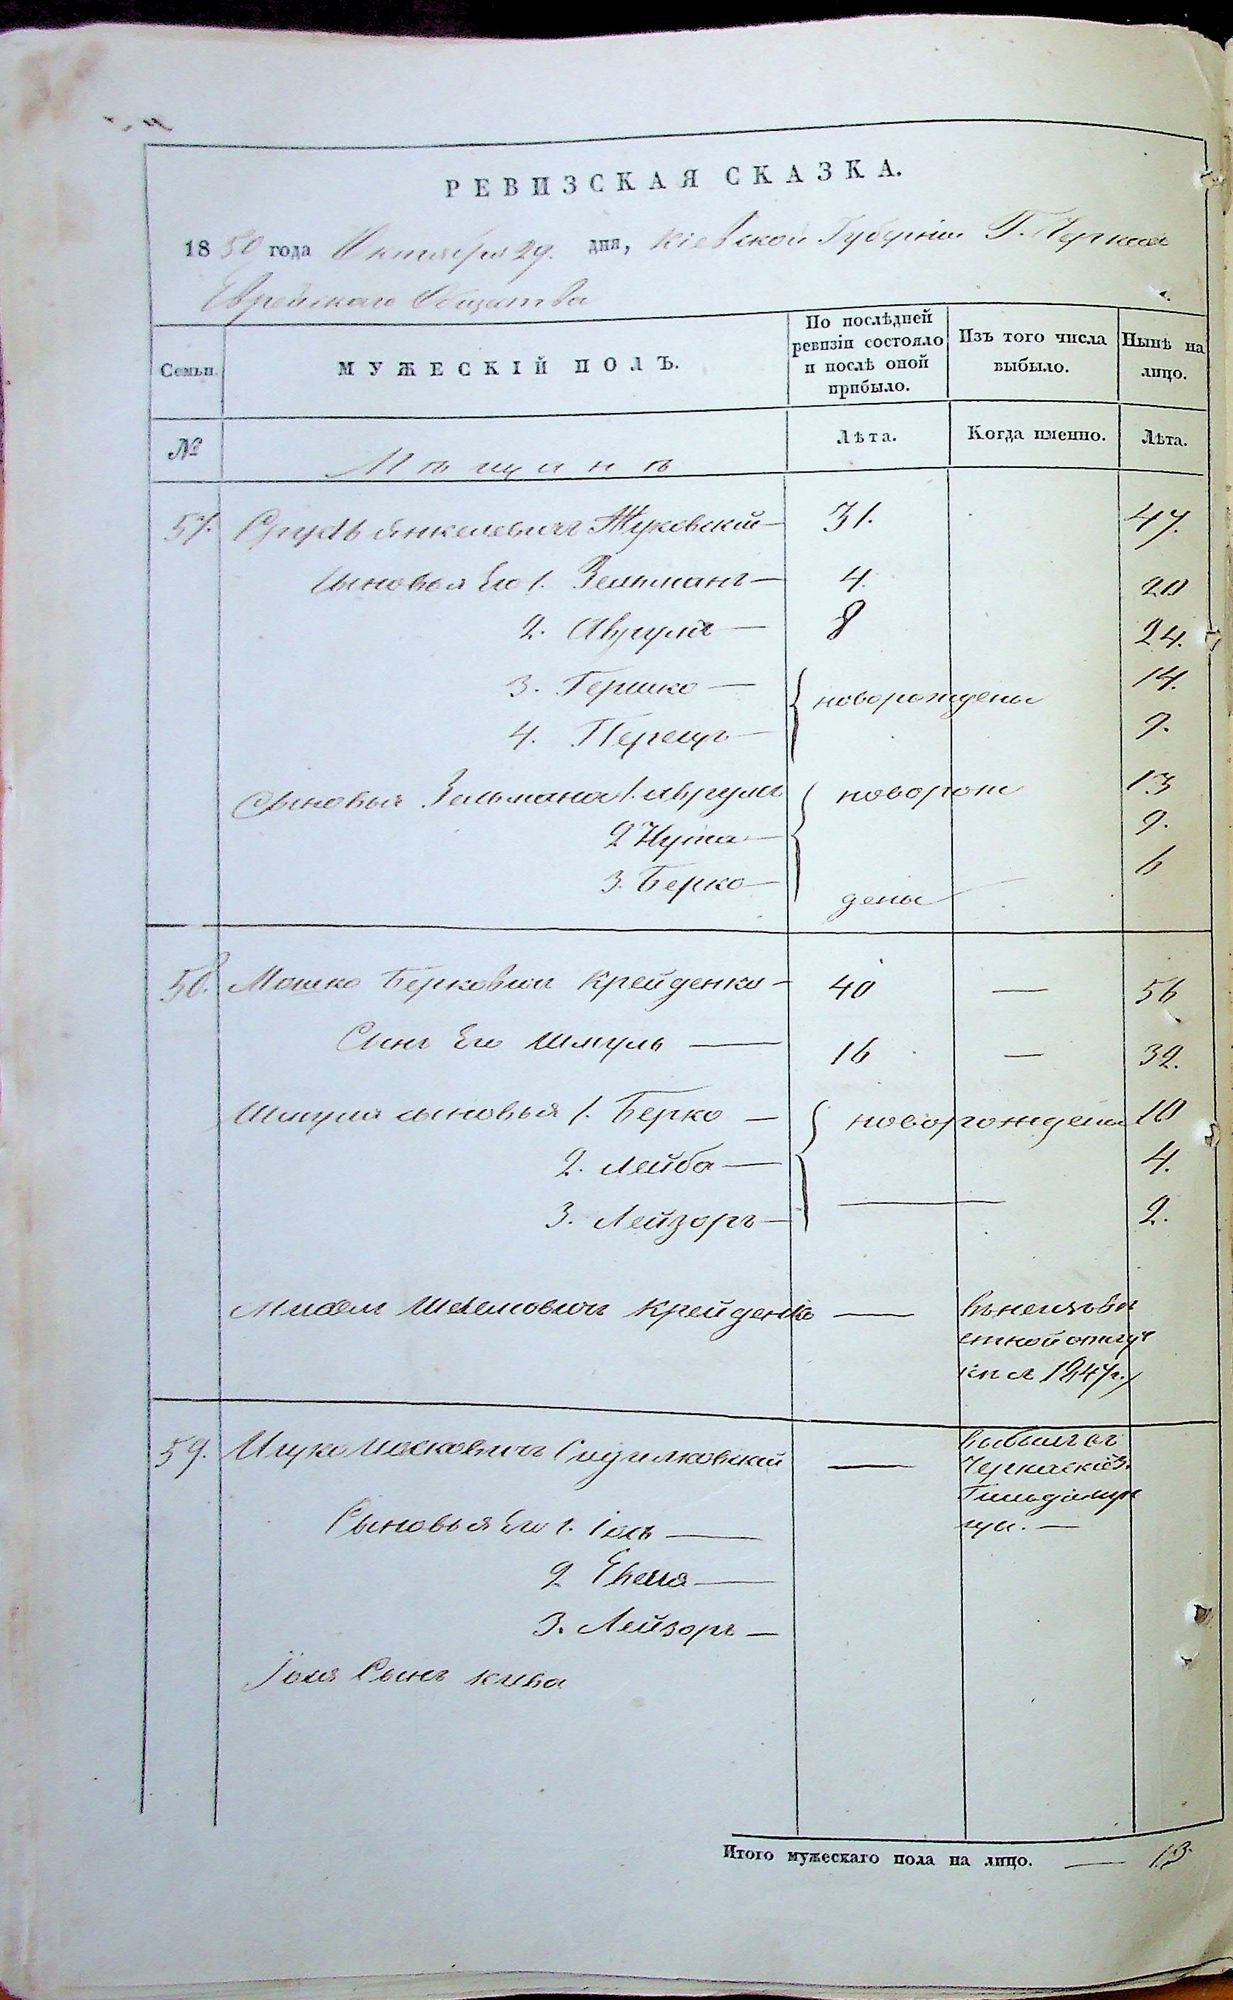 РЕВИЗСКАЯ СКАЗКА.
1850 года Октября 29. дня, Кіевской Губерніи Г. Черкас
Еврейскаго Общества
Семьи.
МУЖЕСКІЙ ПОЛЪ.
По послѣдней ревизіи состояло и послѣ оной прибыло.
Изъ того числа выбыло.
Нынѣ на лицо.
№
Мѣщанѣ
Лѣта.
Когда именно.
Лѣта.
57. Янкелевичъ Жуковскій — 31. 47.
Сыновья Его 1. Зельманъ — 4. 20
2. Аврумъ — 8 24.
3. Гершко — новорождены 14.
4. Перецъ — 9.
Сыновья Зельмана 1. Аврумъ новорож 13
2 Нута — 9.
3. Берко — дены 6
58. Мошко Берковичъ Крейденко — 40 — 56
Сынъ Его Шмуль — 16 — 32.
Шмуля сыновья 1. Берко — новорождены 10
2. Лейба — 4.
3. Лейзоръ — — 2.
Шаемовичъ Крейденко — въ неизвѣ
стной отлуч
кѣ съ 1847г.
59. Ицко Мошковичъ — выбылъ въ
Черкаскіе 3.
Гильдіи куп
цы. —
Сыновья Его 1. Іось —
2. —
3. Лейзоръ —
Сынъ Кива
Итого мужескаго пола на лицо. — 13